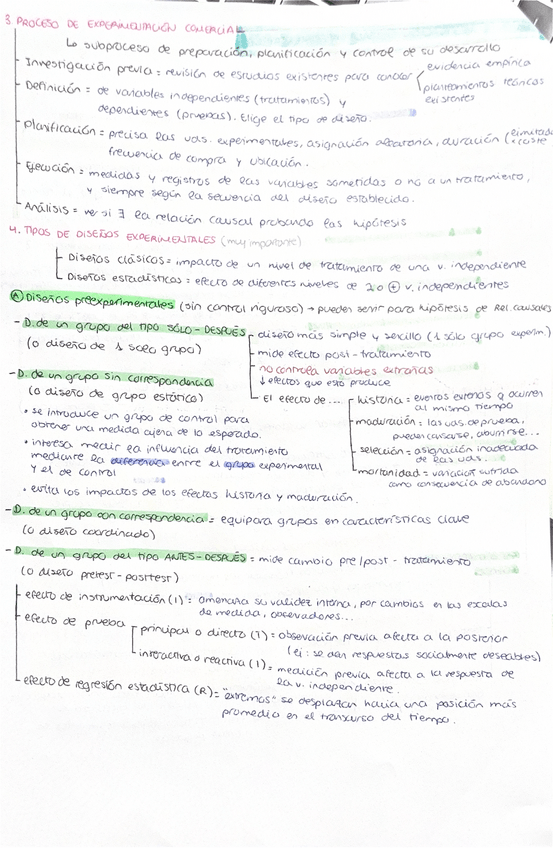 3. PROCESO DE EXPERIMENTACIÓN COMERCIAL
↳ subproceso de preparación, planificación y control de su desarrollo
- Investigación previa = revisión de estudios existentes para conocer < evidencia empírica
planteamientos teóricos existentes
- Definición = de variables independientes (tratamientos) y
dependientes (pruebas). Elige el tipo de diseño.
- Planificación = precisa las uds. experimentales, asignación aleatoria, duración (limitada x coste
frecuencia de compra y ubicación.
- Ejecución = medidas y registros de las variables sometidas o no a un tratamiento,
y siempre según la secuencia del diseño establecido.
- Análisis = ver si ∃ la relación causal probando las hipótesis
4. TIPOS DE DISEÑOS EXPERIMENTALES (muy importante)
- Diseños clásicos = impacto de un nivel de tratamiento de una v. independiente
- Diseños estadísticos = efecto de diferentes niveles de 2 o ⊕ v. independientes
Ⓐ Diseños preexperimentales (sin control riguroso) → pueden servir para hipótesis de Rel. causales
- D. de un grupo del tipo SÓLO-DESPUÉS
(o diseño de 1 solo grupo)
- diseño más simple y sencillo (1 sólo grupo experim.)
- mide efecto post-tratamiento
- no controla variables extrañas
↓ efectos que esto produce
El efecto de...
- historia = eventos externos q ocurren
al mismo tiempo
- maduración = las uds. de prueba,
pueden cansarse, aburrirse...
- selección = asignación inadecuada
de las uds.
- mortandad = variación sufrida
como consecuencia de abandono
- D. de un grupo sin correspondencia
(o diseño de grupo estático)
• se introduce un grupo de control para
obtener una medida ajena de lo esperado.
• interesa medir la influencia del tratamiento
mediante la diferencia entre el grupo experimental
y el de control
• evita los impactos de los efectos historia y maduración.
- D. de un grupo con correspondencia = equipara grupos en características clave
(o diseño coordinado)
- D. de un grupo del tipo ANTES-DESPUÉS = mide cambio pre/post-tratamiento
(o diseño pretest-posttest)
- efecto de instrumentación (I) = amenaza su validez interna, por cambios en las escalas
de medida, observadores...
- efecto de prueba
- principal o directo (T) = observación previa afecta a la posterior
(ej: se dan respuestas socialmente deseables)
- interactiva o reactiva (I) = medición previa afecta a la respuesta de
la v. independiente.
- efecto de regresión estadística (R) = "extremos" se desplazan hacia una posición más
promedia en el transcurso del tiempo.